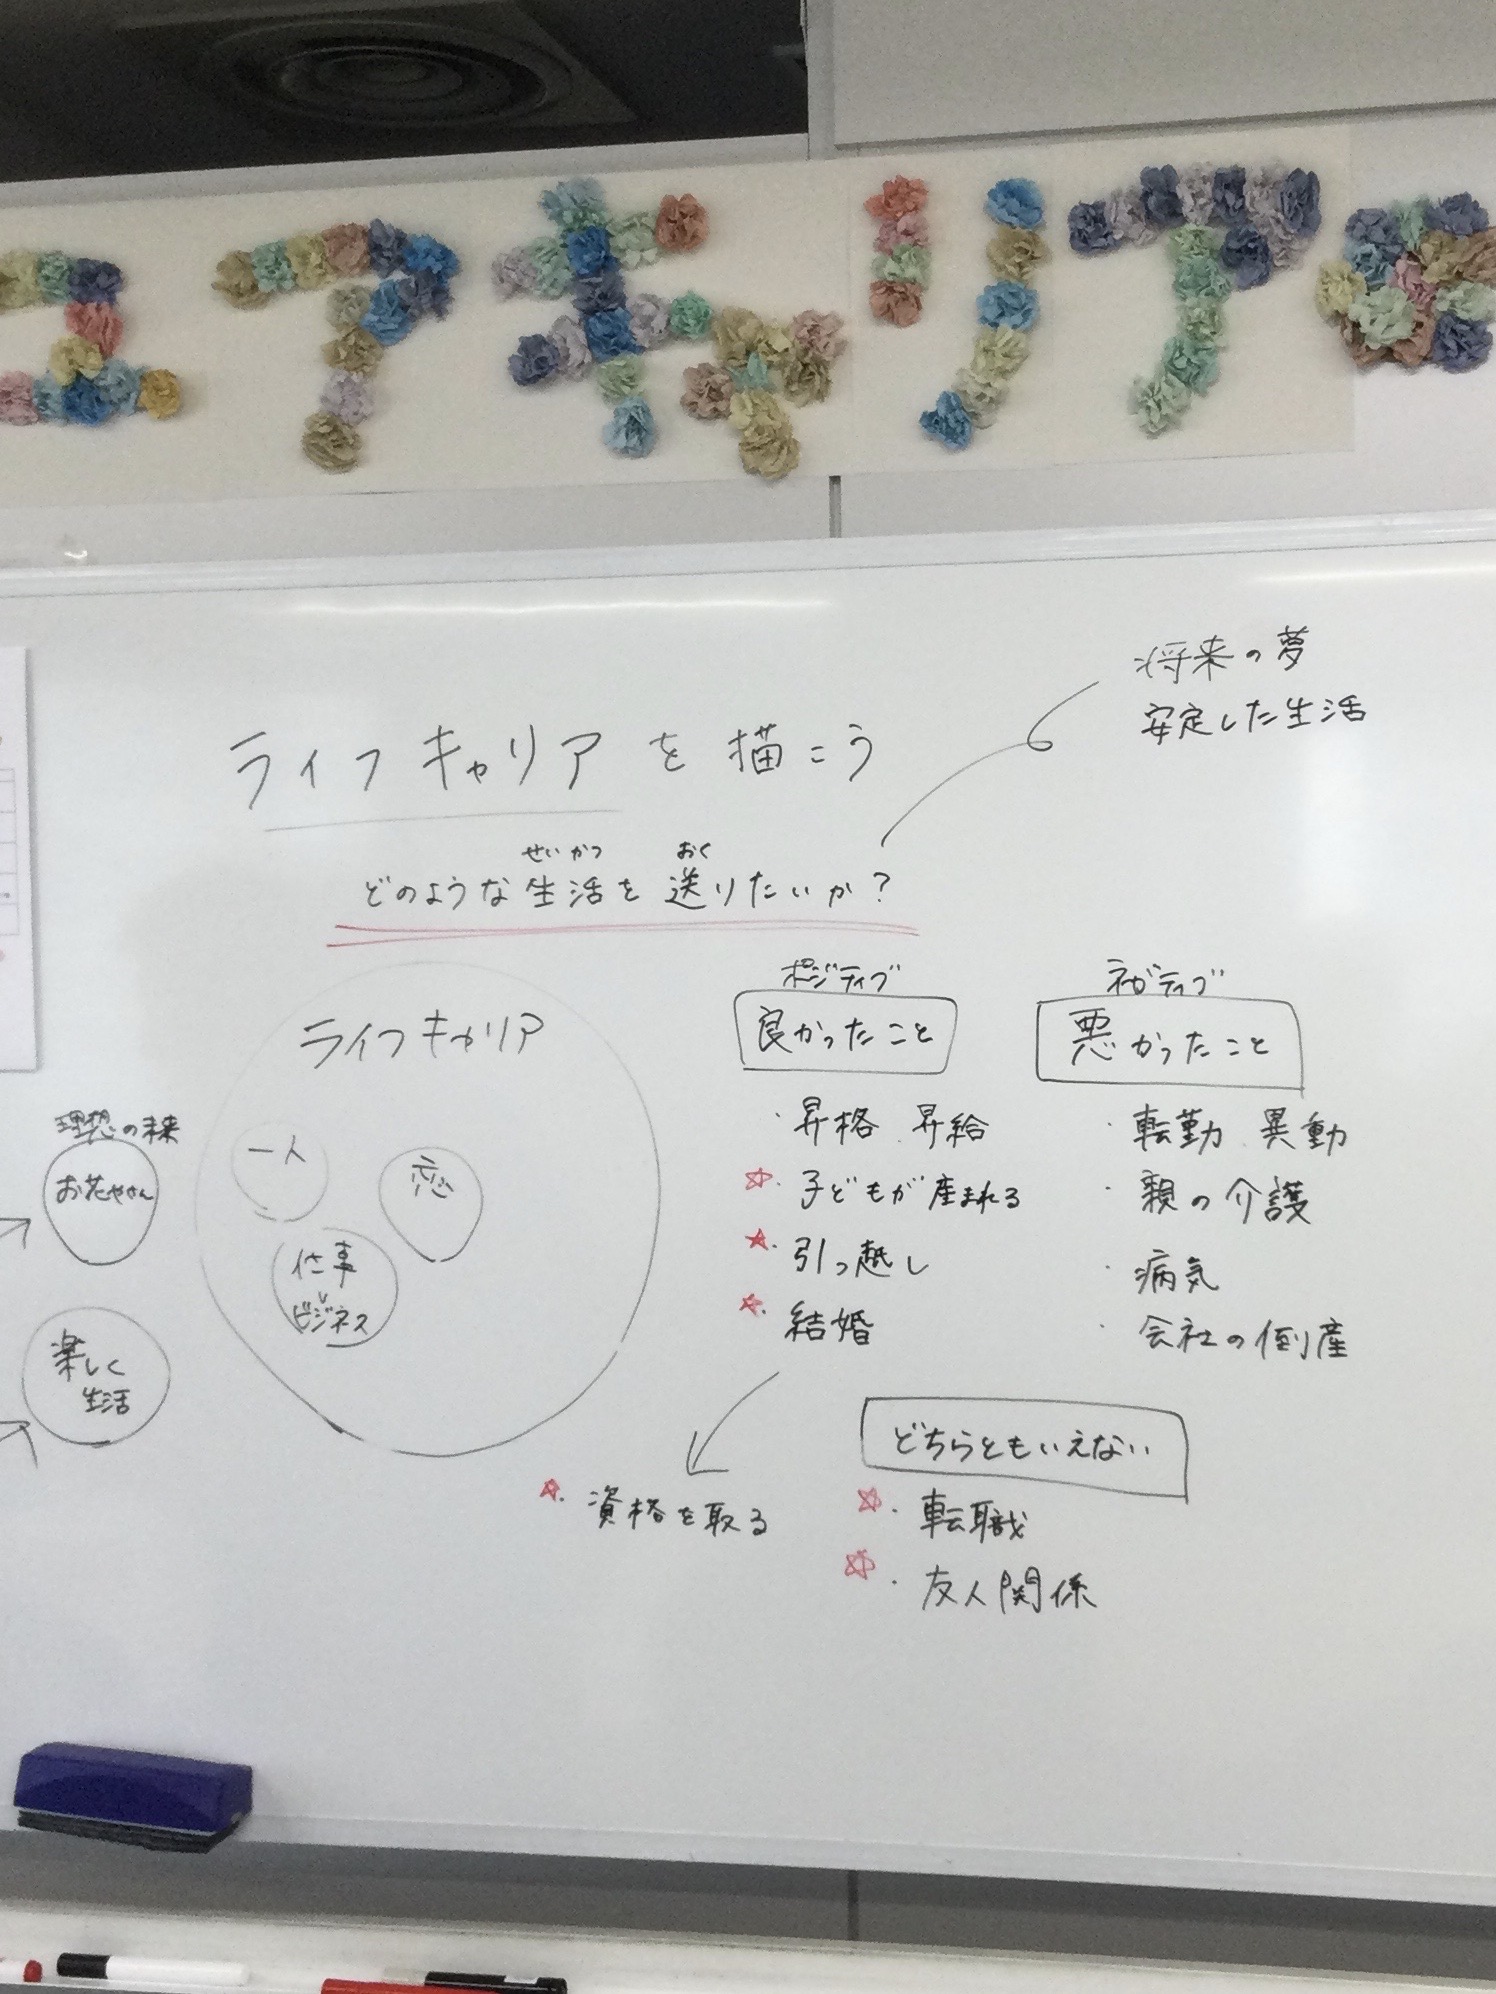 ュアキャリア
将来の夢
安定した生活
ライフキャリアを描こう
せいかつ おく
どのような生活を送りたいか?
ライフキャリア
一人
恋
仕事
ビジネス
理想の未来
お花やさん
楽しく
生活
ポジティブ
良かったこと
・昇格 昇給
☆・子どもが産まれる
☆・引っ越し
☆・結婚
☆・資格を取る
ネガティブ
悪かったこと
・転勤 異動
・親の介護
・病気
・会社の倒産
どちらともいえない
☆・転職
☆・友人関係